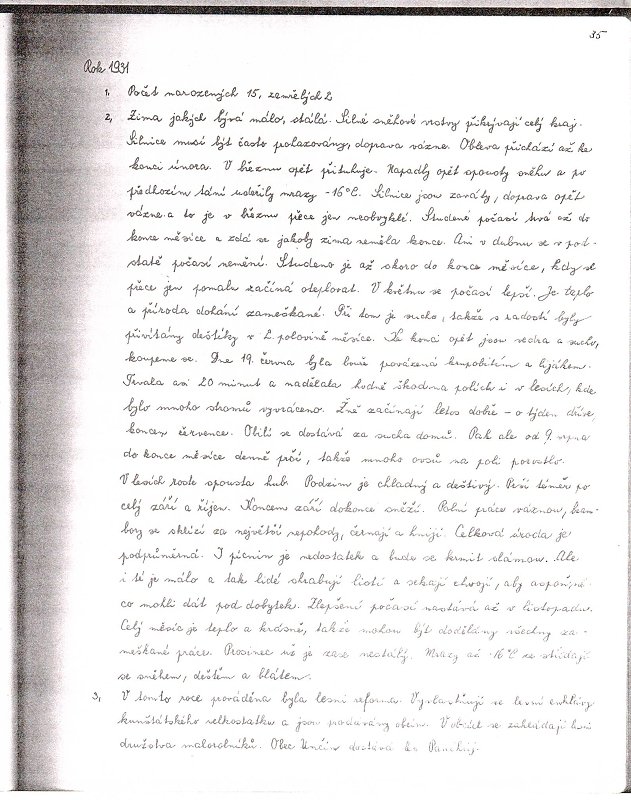 35
Rok 1931
1, Počet narozených 15, zemřelých 2
2, Zima jakých bývá málo, stálá. Silné sněhové vrstvy přikrývají celý kraj.
Silnice musí být často prohazovány, doprava vázne. Obleva přichází až ke
konci února. V březnu opět přituhuje. Napadly opět spousty sněhu a po
předchozím tání udeřily mrazy -16°C. Silnice jsou zaváty, doprava opět
vázne a to je v březnu přece jen neobvyklé. Studené počasí trvá až do
konce měsíce a zdá se jakoby zima neměla konce. Ani v dubnu se v pod-
statě počasí nemění. Studeno je až skoro do konce měsíce, kdy se
přece jen pomalu začíná oteplovat. V květnu se počasí lepší. Je teplo
a příroda dohání zameškané. Při tom je sucho, takže s radostí byly
přivítány deštíky v 2. polovině měsíce. Ke konci opět jsou vedra a sucho,
koupeme se. Dne 19. června byla bouře provázená krupobitím a lijákem.
Trvala asi 20 minut a nadělala hodně škod na polích i v lesích, kde
bylo mnoho stromů vyvráceno. Žně začínají letos dobře - o týden dříve,
koncem července. Obilí se dostává za sucha domů. Pak ale od 9. srpna
do konce měsíce denně prší, takže mnoho ovsů na poli porostlo.
V lesích roste spousta hub. Podzim je chladný a deštivý. Prší téměř po
celý září a říjen. Koncem září dokonce sněží. Polní práce váznou, bram-
bory se sklízí za největší nepohody, černají a hnijí. Celková úroda je
podprůměrná. I pícnin je nedostatek a bude se krmit slámou. Ale
i té je málo a tak lidé shrabují listí a sekají chvojí, aby aspoň ně-
co mohli dát pod dobytek. Zlepšení počasí nastává až v listopadu.
Celý měsíc je teplo a krásně, takže mohou být dodělány všechny za-
meškané práce. Prosinec už je zase nestálý. Mrazy až -16°C se střídají
se sněhem, deštěm a blátem.
3, V tomto roce prováděna byla lesní reforma. Vyvlastňují se lesní enklávy
kunštátského velkostatku a jsou prodávány obcím. V obcích se zakládají
družstva malorolníků. Obec Unčín dostává les Paničný.